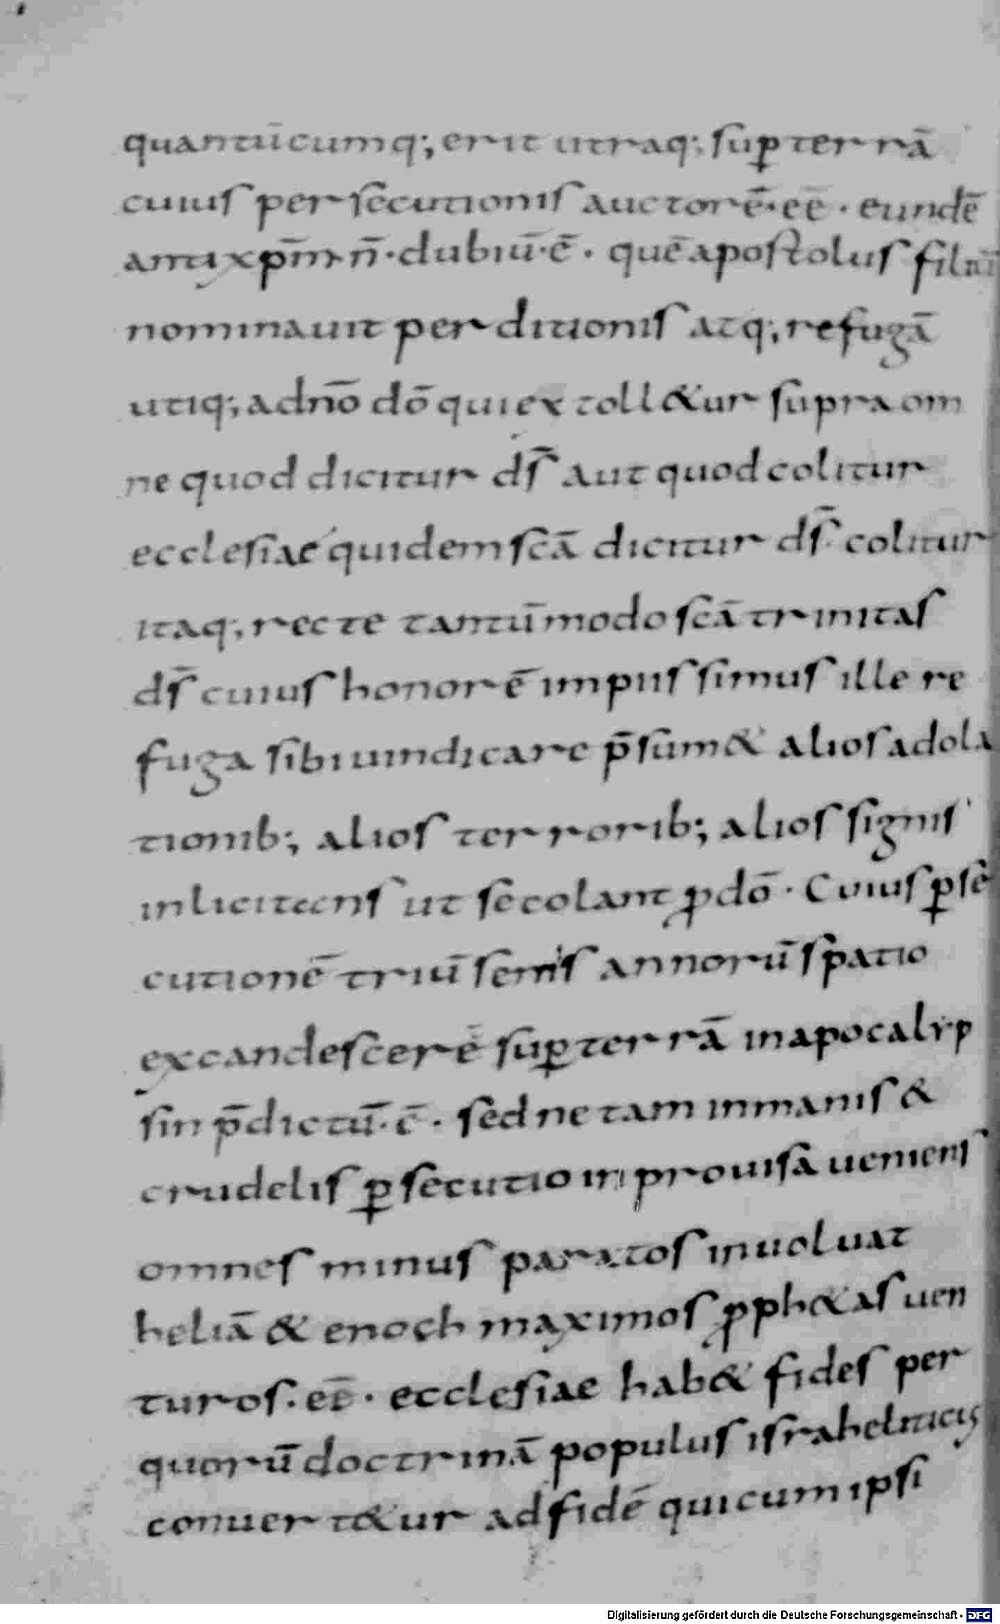 quantūcumq; erit utraq; sup terrā
cuius persecutionis auctorē·eē· eundē
antixpm̄ n̄·dubiū·ē· quē apostolus filiū
nominauit perditionis atq; refugā
utiq; a dn̄o dō qui extoll&ur supra om
ne quod dicitur ds̄ aut quod colitur
ecclesiae quidem scā dicitur ds̄ colitur
itaq; recte tantūmodo scā trinitas
ds̄ cuius honorē impiissimus ille re
fuga sibi uindicare p̄sum& alios adola
tionib; alios terrorib; alios signis
inlicitens ut se colant p dō· Cuius pse
cutionē triū semis annorū spatio
excandescerē sup terrā in apocalyp
sin p̄dictū·ē· sed ne tam inmanis &
crudelis psecutio inprouisa ueniens
omnes minus paratos inuoluat
heliā & enoch maximos pph&as uen
turos·eē· ecclesiae hab& fides per
quorū doctrinā populus israheliticus
conuert&ur ad fidē qui cum ipsi
Digitalisierung gefördert durch die Deutsche Forschungsgemeinschaft - DFG